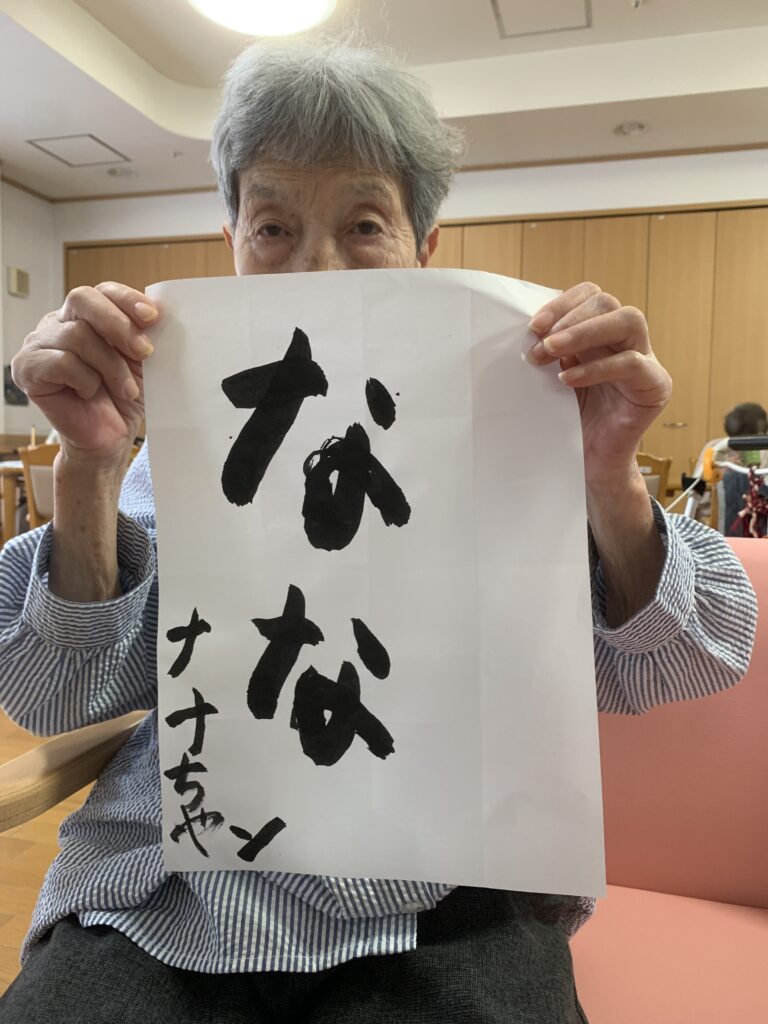 なな
ナナちゃン